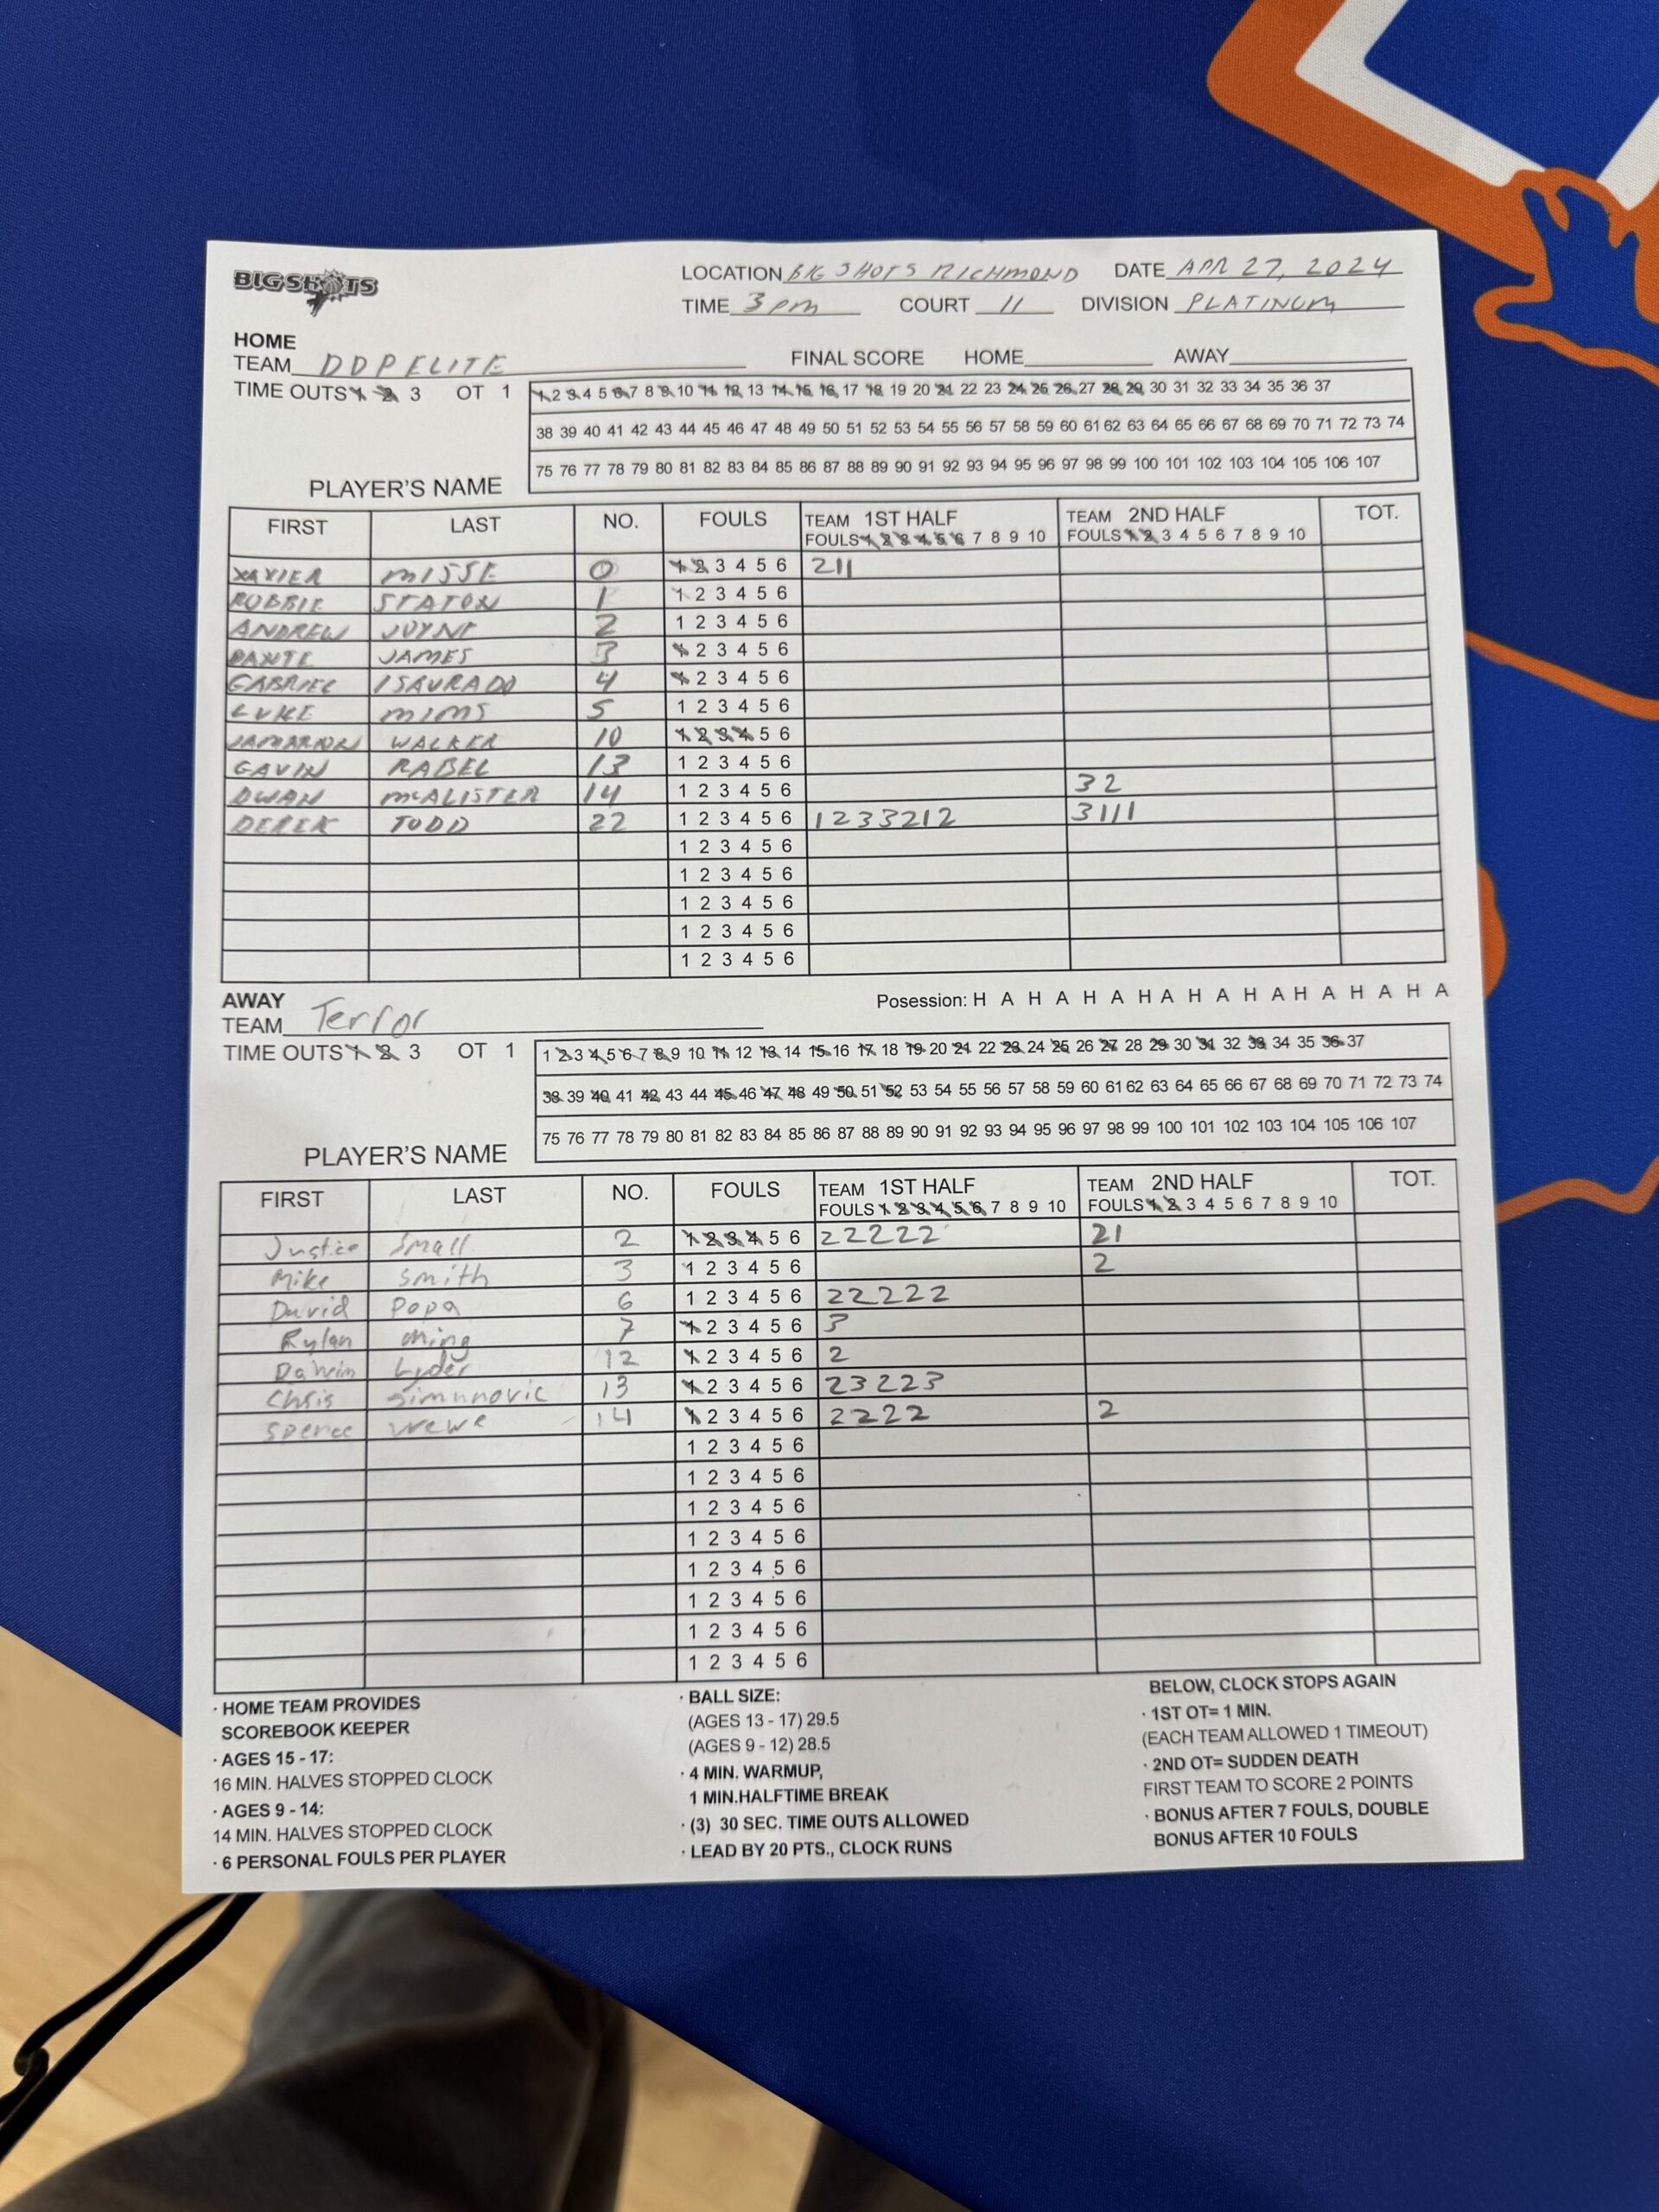 BIG SHOTS
LOCATION BIG SHOTS RICHMOND DATE APR 27, 2024
TIME 3 pm COURT 11 DIVISION PLATINUM
HOME
TEAM DDP ELITE FINAL SCORE HOME AWAY
TIME OUTS 1 2 3 OT 1
1 2 3 4 5 6 7 8 9 10 11 12 13 14 15 16 17 18 19 20 21 22 23 24 25 26 27 28 29 30 31 32 33 34 35 36 37
38 39 40 41 42 43 44 45 46 47 48 49 50 51 52 53 54 55 56 57 58 59 60 61 62 63 64 65 66 67 68 69 70 71 72 73 74
75 76 77 78 79 80 81 82 83 84 85 86 87 88 89 90 91 92 93 94 95 96 97 98 99 100 101 102 103 104 105 106 107
PLAYER'S NAME
FIRST LAST NO. FOULS TEAM 1ST HALF TEAM 2ND HALF TOT.
FOULS 1 2 3 4 5 6 7 8 9 10 FOULS 1 2 3 4 5 6 7 8 9 10
XAVIER MISSE 0 1 2 3 4 5 6 211
ROBBIE STATON 1 1 2 3 4 5 6
ANDREW JOYNE 2 1 2 3 4 5 6
DANTE JAMES 3 1 2 3 4 5 6
GABRIEL ISAURADO 4 1 2 3 4 5 6
LUKE MIMS 5 1 2 3 4 5 6
JAMARION WALKER 10 1 2 3 4 5 6
GAVIN RABEL 13 1 2 3 4 5 6
DWAN McALISTER 14 1 2 3 4 5 6 32
DEREK TODD 22 1 2 3 4 5 6 1233212 3111
1 2 3 4 5 6
1 2 3 4 5 6
1 2 3 4 5 6
1 2 3 4 5 6
1 2 3 4 5 6
AWAY Posession: H A H A H A H A H A H A H A H A H A
TEAM Terror
TIME OUTS 1 2 3 OT 1
1 2 3 4 5 6 7 8 9 10 11 12 13 14 15 16 17 18 19 20 21 22 23 24 25 26 27 28 29 30 31 32 33 34 35 36 37
38 39 40 41 42 43 44 45 46 47 48 49 50 51 52 53 54 55 56 57 58 59 60 61 62 63 64 65 66 67 68 69 70 71 72 73 74
75 76 77 78 79 80 81 82 83 84 85 86 87 88 89 90 91 92 93 94 95 96 97 98 99 100 101 102 103 104 105 106 107
PLAYER'S NAME
FIRST LAST NO. FOULS TEAM 1ST HALF TEAM 2ND HALF TOT.
FOULS 1 2 3 4 5 6 7 8 9 10 FOULS 1 2 3 4 5 6 7 8 9 10
Justice Small 2 1 2 3 4 5 6 22222 21
Mike Smith 3 1 2 3 4 5 6 2
David Popa 6 1 2 3 4 5 6 22222
Rylan Ming 7 1 2 3 4 5 6 3
Daheim Lyder 12 1 2 3 4 5 6 2
Chris Simunovic 13 1 2 3 4 5 6 23223
14 1 2 3 4 5 6 2222 2
1 2 3 4 5 6
1 2 3 4 5 6
1 2 3 4 5 6
1 2 3 4 5 6
1 2 3 4 5 6
1 2 3 4 5 6
1 2 3 4 5 6
1 2 3 4 5 6
· HOME TEAM PROVIDES
SCOREBOOK KEEPER
· AGES 15 - 17:
16 MIN. HALVES STOPPED CLOCK
· AGES 9 - 14:
14 MIN. HALVES STOPPED CLOCK
· 6 PERSONAL FOULS PER PLAYER
· BALL SIZE:
(AGES 13 - 17) 29.5
(AGES 9 - 12) 28.5
· 4 MIN. WARMUP,
1 MIN.HALFTIME BREAK
· (3) 30 SEC. TIME OUTS ALLOWED
· LEAD BY 20 PTS., CLOCK RUNS
BELOW, CLOCK STOPS AGAIN
· 1ST OT= 1 MIN.
(EACH TEAM ALLOWED 1 TIMEOUT)
· 2ND OT= SUDDEN DEATH
FIRST TEAM TO SCORE 2 POINTS
· BONUS AFTER 7 FOULS, DOUBLE
BONUS AFTER 10 FOULS